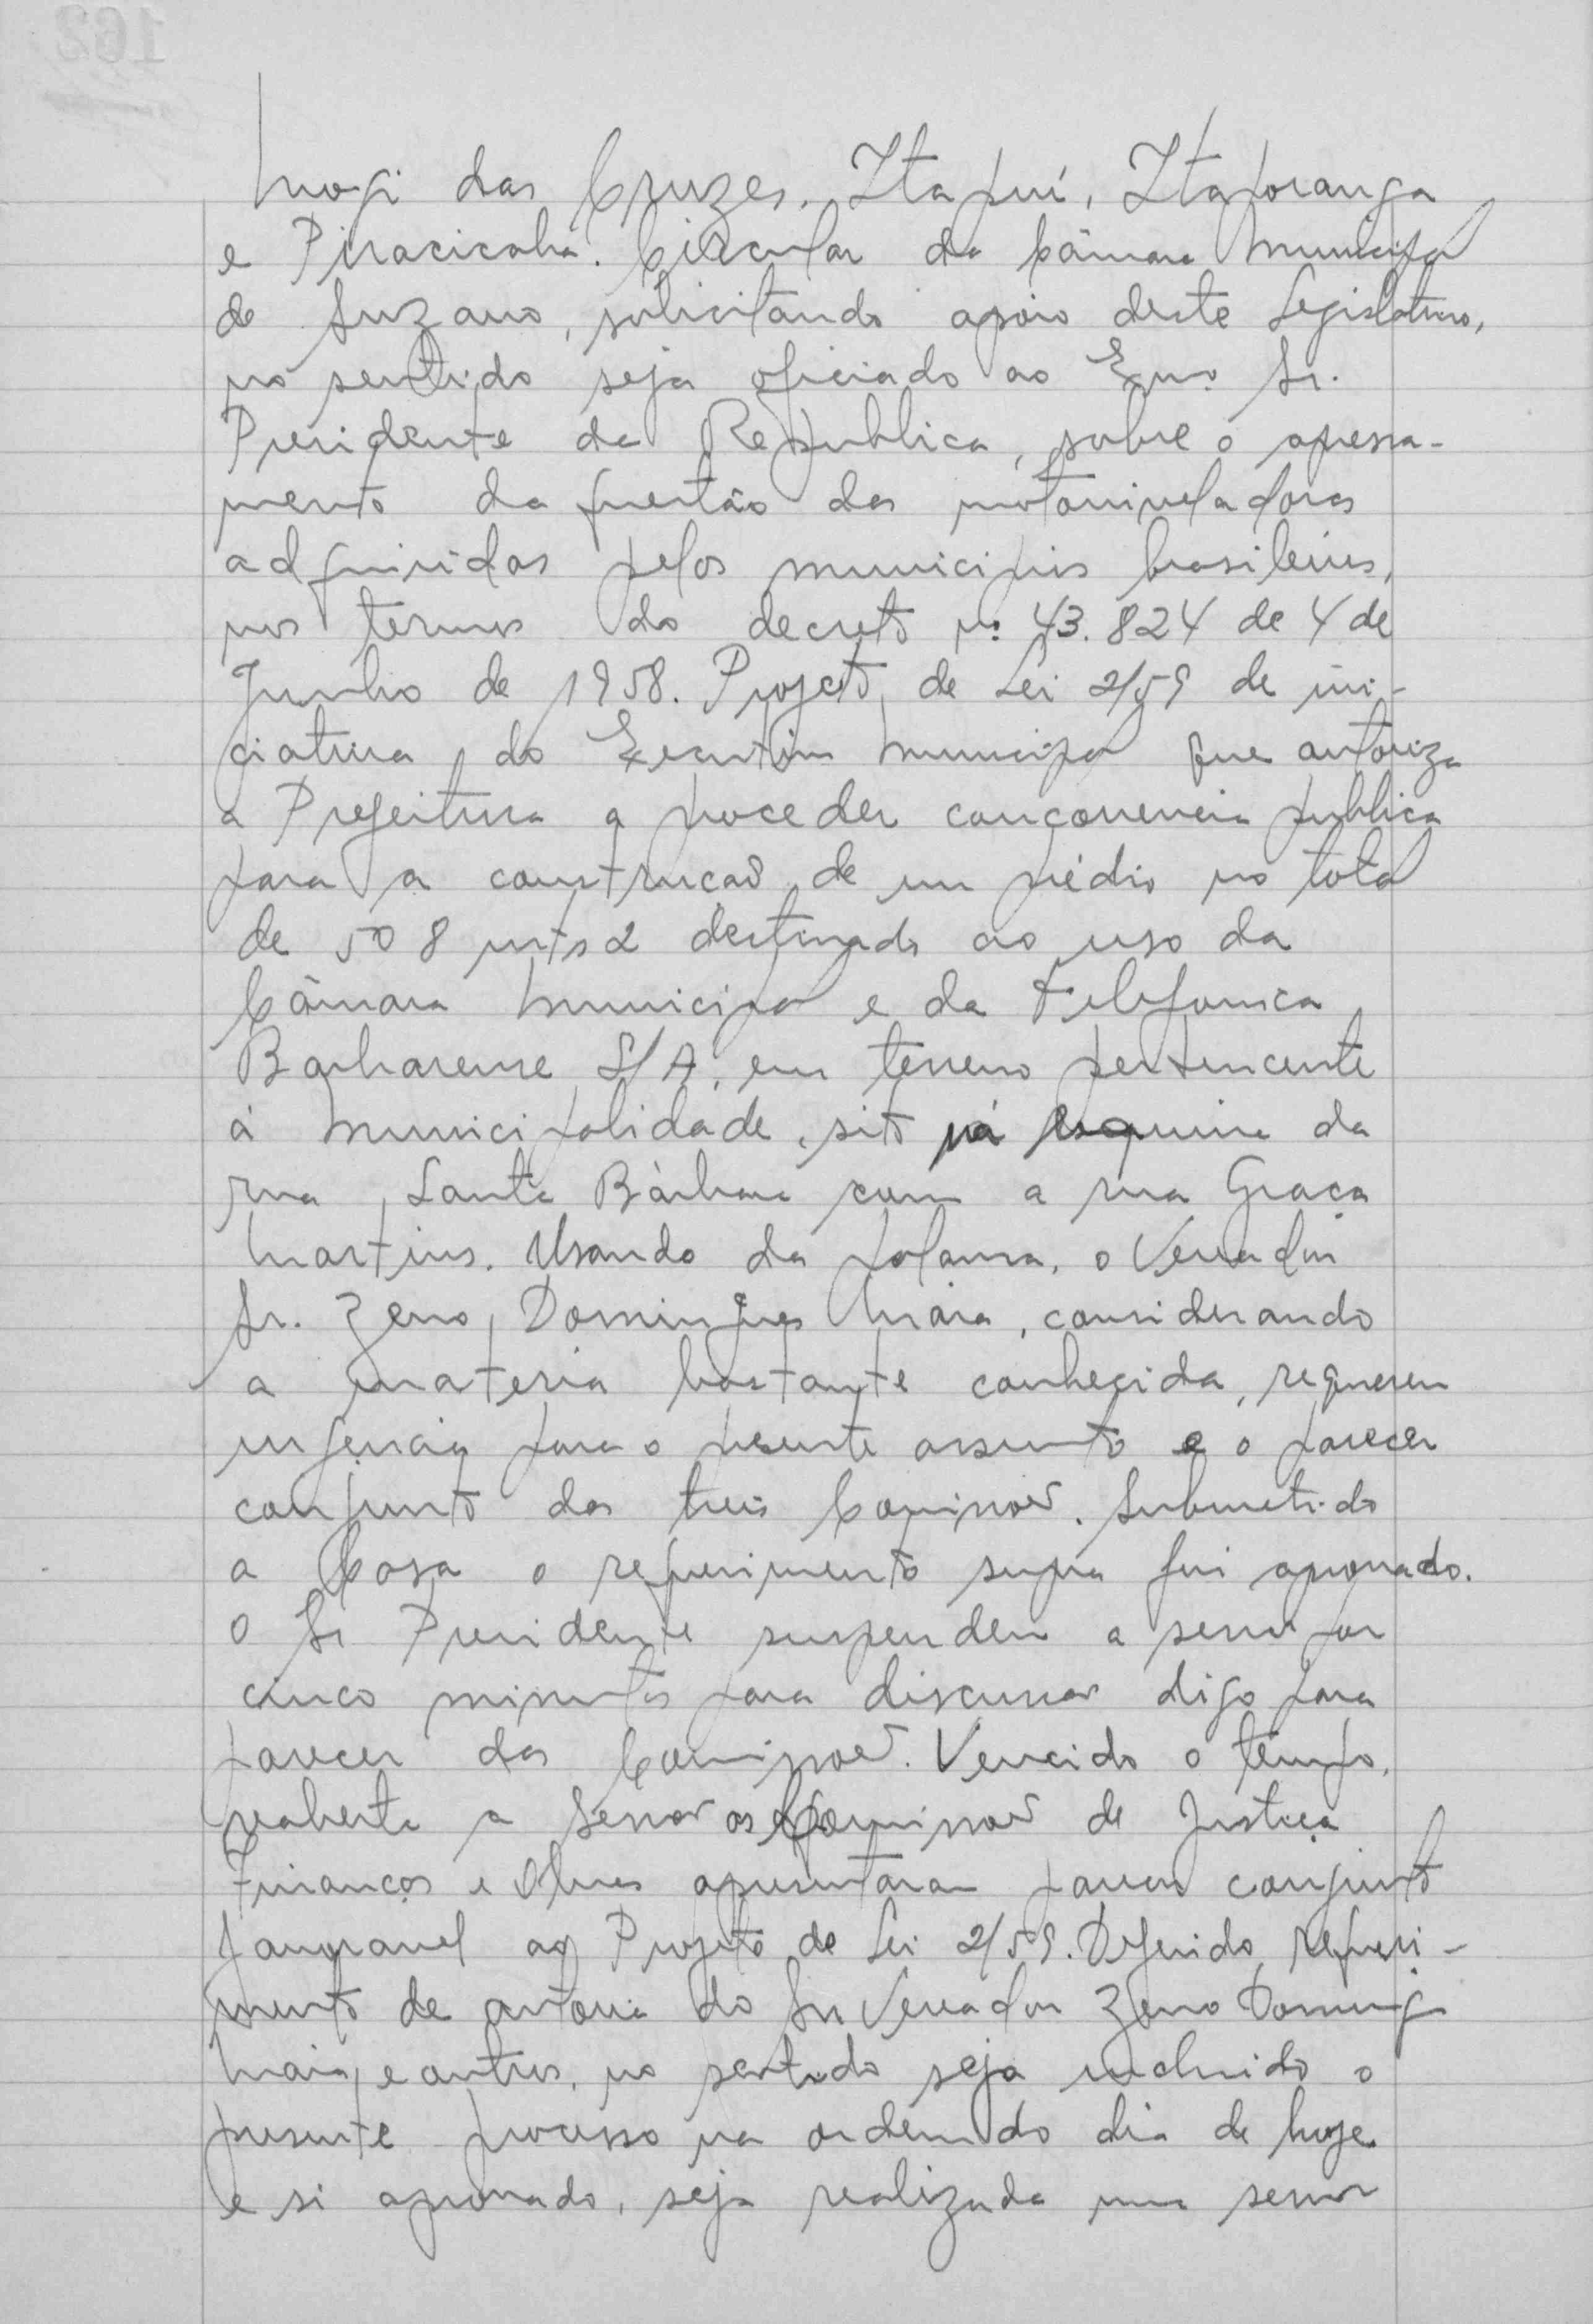 Mogi das Cruzes, Itapuí, Itaporanga
e Piracicaba. Circular da Câmara Municipal
de Suzano, solicitando apoio deste Legislativo,
no sentido seja oficiado ao Exmo Sr.
Presidente da Republica, sobre o apressa-
mento da questão das motoniveladoras
adquiridas pelos municipios brasileiros,
nos termos do decreto nº 43.824 de 4 de
Junho de 1958. Projeto de Lei 2/59 de ini-
ciativa do Executivo Municipal que autoriza
a Prefeitura a proceder concorrencia publica
para a construção de um prédio no total
de 508 mts2 destinado ao uso da
Câmara Municipal e da Telefonica
Barbarense S/A, em terreno pertencente
á Municipalidade, sito ná esquina da
rua Santa Bárbara com a rua Graça
Martins. Usando da palavra, o Vereador
Sr. Zeno Domingues Maia, considerando
a materia bastante conhecida, requereu
urgencia para o presente assunto e o parecer
conjunto das treis Comissoẽs. Submetido
a Casa o requerimento supra foi aprovado.
O Sr Presidente suspendeu a sessão por
cinco minutos para discussão digo para
parecer das Comissoẽs. Vencido o tempo,
reaberta a Sessão as Comissoẽs de Justiça
Finanças e Obras apresentaram parecer conjunto
favoravel ao Projeto de Lei 2/59. Deferido requeri-
mento de autoria do Snr Vereador Zeno Doming
Maia e outros, no sentido seja incluido o
presente processo na ordem do dia de hoje
e si aprovado, seja realizada uma sessão